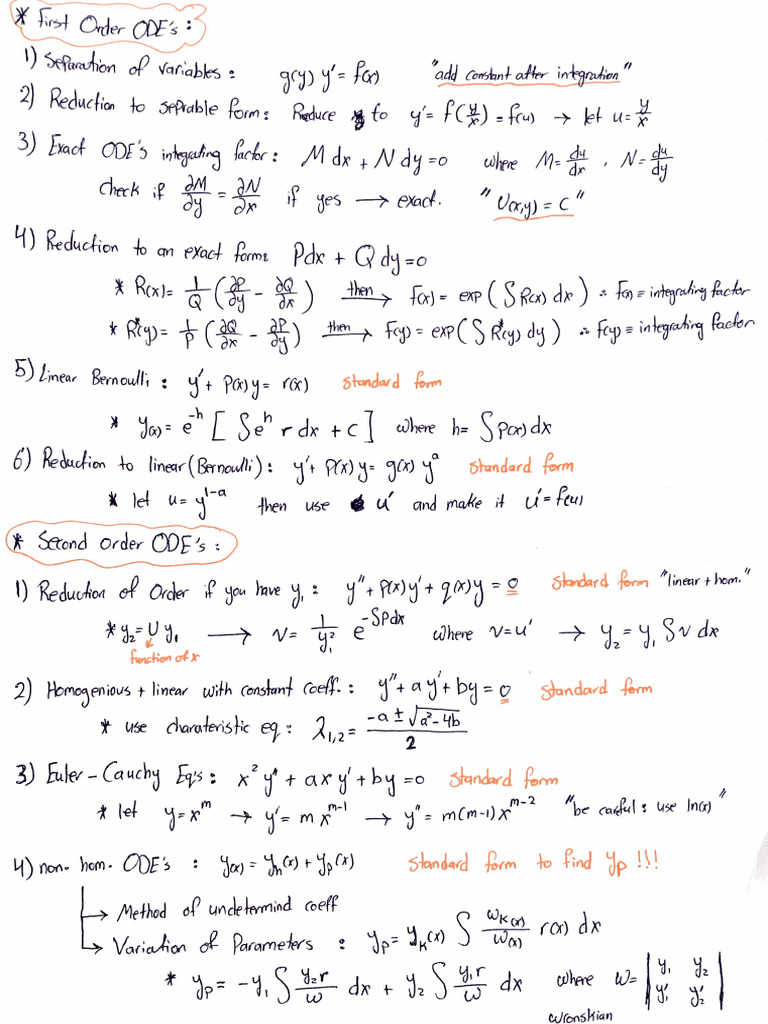 * First Order ODE's :
1) Separation of variables : g(y) y' = f(x) "add constant after integration"
2) Reduction to seprable form : Reduce to y' = f(y/x) = f(u) → let u = y/x
3) Exact ODE's integrating factor : M dx + N dy = 0 where M = du/dx , N = du/dy
check if ∂M/∂y = ∂N/∂x if yes → exact. "U(x,y) = C"
4) Reduction to an exact form : Pdx + Q dy = 0
* R(x) = 1/Q (∂P/∂y - ∂Q/∂x) then → F(x) = exp(∫R(x) dx) ∴ F(x) = integrating factor
* R*(y) = 1/P (∂Q/∂x - ∂P/∂y) then → F(y) = exp(∫R*(y) dy) ∴ F(y) = integrating factor
5) Linear Bernoulli : y' + P(x) y = r(x) standard form
* y(x) = e^-h [ ∫e^h r dx + C ] where h = ∫P(x) dx
6) Reduction to linear (Bernoulli) : y' + P(x) y = g(x) y^a standard form
* let u = y^1-a then use u' and make it u' = f(u)
* Second Order ODE's :
1) Reduction of Order if you have y₁ : y'' + P(x) y' + q(x) y = 0 standard form "linear + hom."
* y₂ = U y₁ → v = 1/y₁² e^-∫Pdx where v = u' → y₂ = y₁ ∫v dx
function of x
2) Homogenious + linear with constant coeff. : y'' + a y' + by = 0 standard form
* use charateristic eq : λ₁,₂ = (-a ± √(a² - 4b))/2
3) Euler - Cauchy Eq's : x² y'' + axy' + by = 0 standard form
* let y = x^m → y' = m x^m-1 → y'' = m(m-1) x^m-2 "be careful : use ln(x)"
4) non-hom. ODE's : y(x) = yh(x) + yp(x) standard form to find yp !!!
→ Method of undetermind coeff
→ Variation of Parameters : yp = yk(x) ∫ wk(x)/w(x) r(x) dx
* yp = -y₁ ∫ y₂r/w dx + y₂ ∫ y₁r/w dx where w = | y₁ y₂ |
| y₁' y₂' |
wronskian